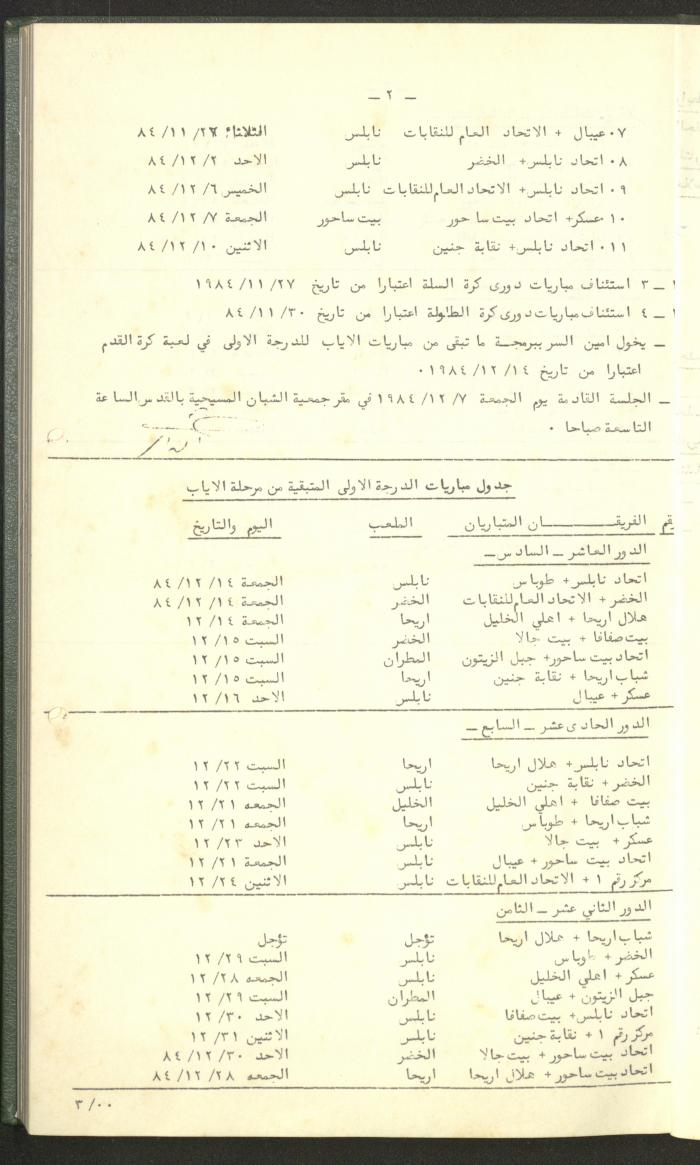 – ٢ –
٠٧ عيبال + الاتحاد العام للنقابات نابلس الثلاثاء ٨٤/١١/٢٧
٠٨ اتحاد نابلس+ الخضر نابلس الاحد ٨٤/١٢/٢
٠٩ اتحاد نابلس+ الاتحاد العام للنقابات نابلس الخميس ٨٤/١٢/٦
٠١٠ عسكر+ اتحاد بيت ساحور بيت ساحور الجمعة ٨٤/١٢/٧
٠١١ اتحاد نابلس+ نقابة جنين نابلس الاثنين ٨٤/١٢/١٠
٣ – استئناف مباريات دورى كرة السلة اعتبارا من تاريخ ١٩٨٤/١١/٢٧
٤ – استئناف مباريات دورى كرة الطاولة اعتبارا من تاريخ ٨٤/١١/٣٠
– يخول امين السر ببرمجة ما تبقى من مباريات الاياب للدرجة الاولى في لعبة كرة القدم
اعتبارا من تاريخ ١٩٨٤/١٢/١٤٠
– الجلسة القادمة يوم الجمعة ١٩٨٤/١٢/٧ في مقر جمعية الشبان المسيحية بالقدس الساعة
التاسعة صباحا ٠
جدول مباريات الدرجة الاولى المتبقية من مرحلة الاياب
الفريقــان المتباريان الملعب اليوم والتاريخ
الدور العاشر – السادس–
اتحاد نابلس+ طوباس نابلس الجمعة ٨٤/١٢/١٤
الخضر + الاتحاد العام للنقابات الخضر الجمعة ٨٤/١٢/١٤
هلال اريحا + اهلي الخليل اريحا الجمعة ١٢/١٤
بيت صفافا + بيت جالا الخضر السبت ١٢/١٥
اتحاد بيت ساحور+ جبل الزيتون المطران السبت ١٢/١٥
شباب اريحا + نقابة جنين اريحا السبت ١٢/١٥
عسكر + عيبال نابلس الاحد ١٢/١٦
الدور الحادى عشر – السابع –
اتحاد نابلس+ هلال اريحا اريحا السبت ١٢/٢٢
الخضر + نقابة جنين نابلس السبت ١٢/٢٢
بيت صفافا + اهلي الخليل الخليل الجمعه ١٢/٢١
شباب اريحا + طوباس اريحا الجمعه ١٢/٢١
عسكر + بيت جالا نابلس الاحد ١٢/٢٣
اتحاد بيت ساحور + عيبال نابلس الجمعة ١٢/٢١
مركز رقم ١ + الاتحاد العام للنقابات نابلس الاثنين ١٢/٢٤
الدور الثاني عشر – الثامن
شباب اريحا + هلال اريحا تؤجل تؤجل
الخضر + طوباس نابلس السبت ١٢/٢٩
عسكر + اهلي الخليل نابلس الجمعه ١٢/٢٨
جبل الزيتون + عيبال المطران السبت ١٢/٢٩
اتحاد نابلس+ بيت صفافا نابلس الاحد ١٢/٣٠
مركز رقم ١ + نقابة جنين نابلس الاثنين ١٢/٣١
اتحاد بيت ساحور + بيت جالا الخضر الاحد ٨٤/١٢/٣٠
اتحاد بيت ساحور + هلال اريحا اريحا الجمعه ٨٤/١٢/٢٨
٣/٠٠